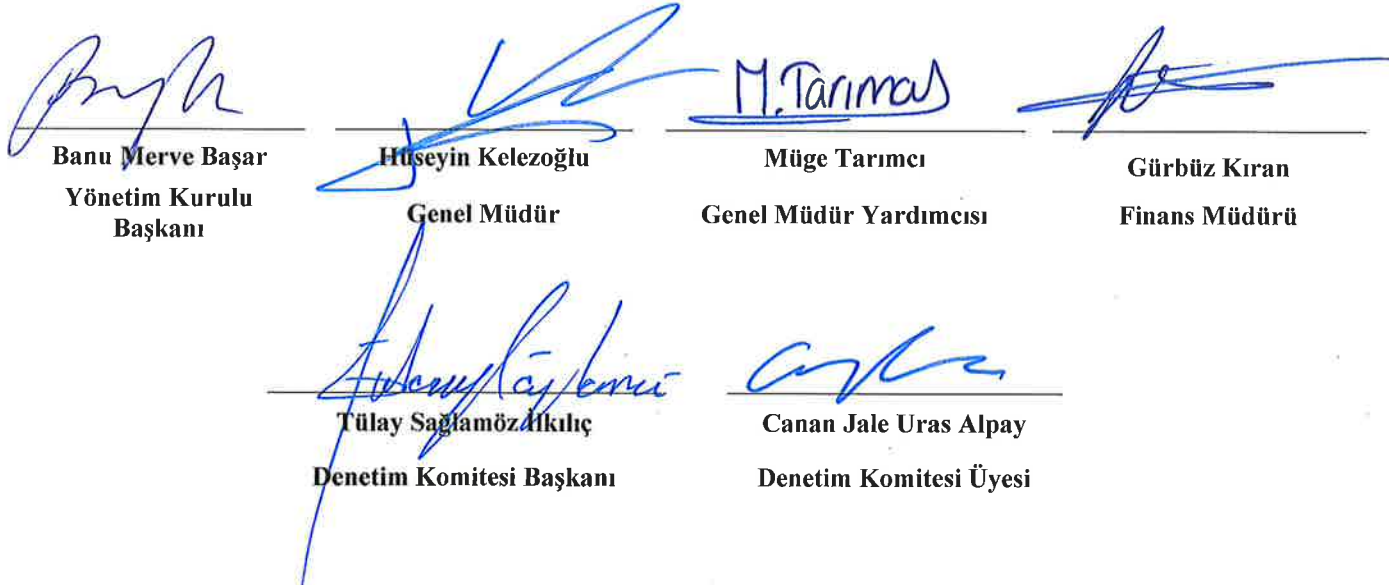 M. Tarımcı
Banu Merve Başar
Yönetim Kurulu
Başkanı
Hüseyin Kelezoğlu
Genel Müdür
Müge Tarımcı
Genel Müdür Yardımcısı
Gürbüz Kıran
Finans Müdürü
Tülay Sağlamöz İlkılıç
Denetim Komitesi Başkanı
Canan Jale Uras Alpay
Denetim Komitesi Üyesi